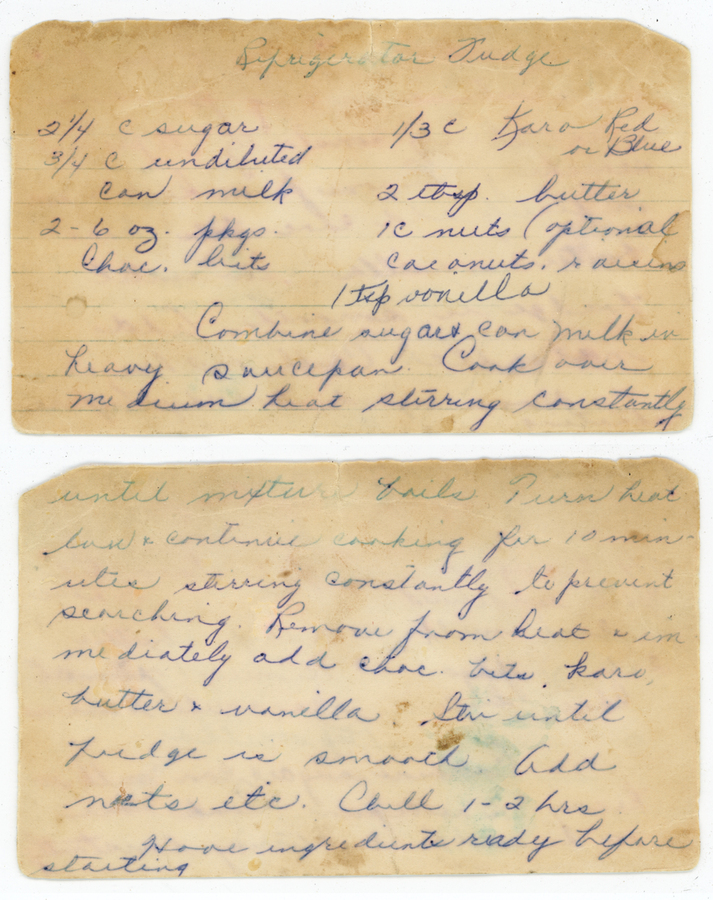 Refrigerator Fudge
2 1/4 c sugar
3/4 c undiluted
can milk
2 - 6 oz. pkgs.
Choc. bits
1/3 c Karo Red
or Blue
2 tbsp. butter
1c nuts (optional
cocoanuts, raisins
1 tsp vanilla
Combine sugar & can milk in
heavy saucepan. Cook over
medium heat stirring constantly
until mixture boils Turn heat
low & continue cooking for 10 min-
utes stirring constantly to prevent
scorching. Remove from heat & im
mediately add choc. bits, karo,
butter & vanilla. Stir until
fudge is smooth. Add
nuts etc. Chill 1-2 hrs.
Have ingredients ready before
starting